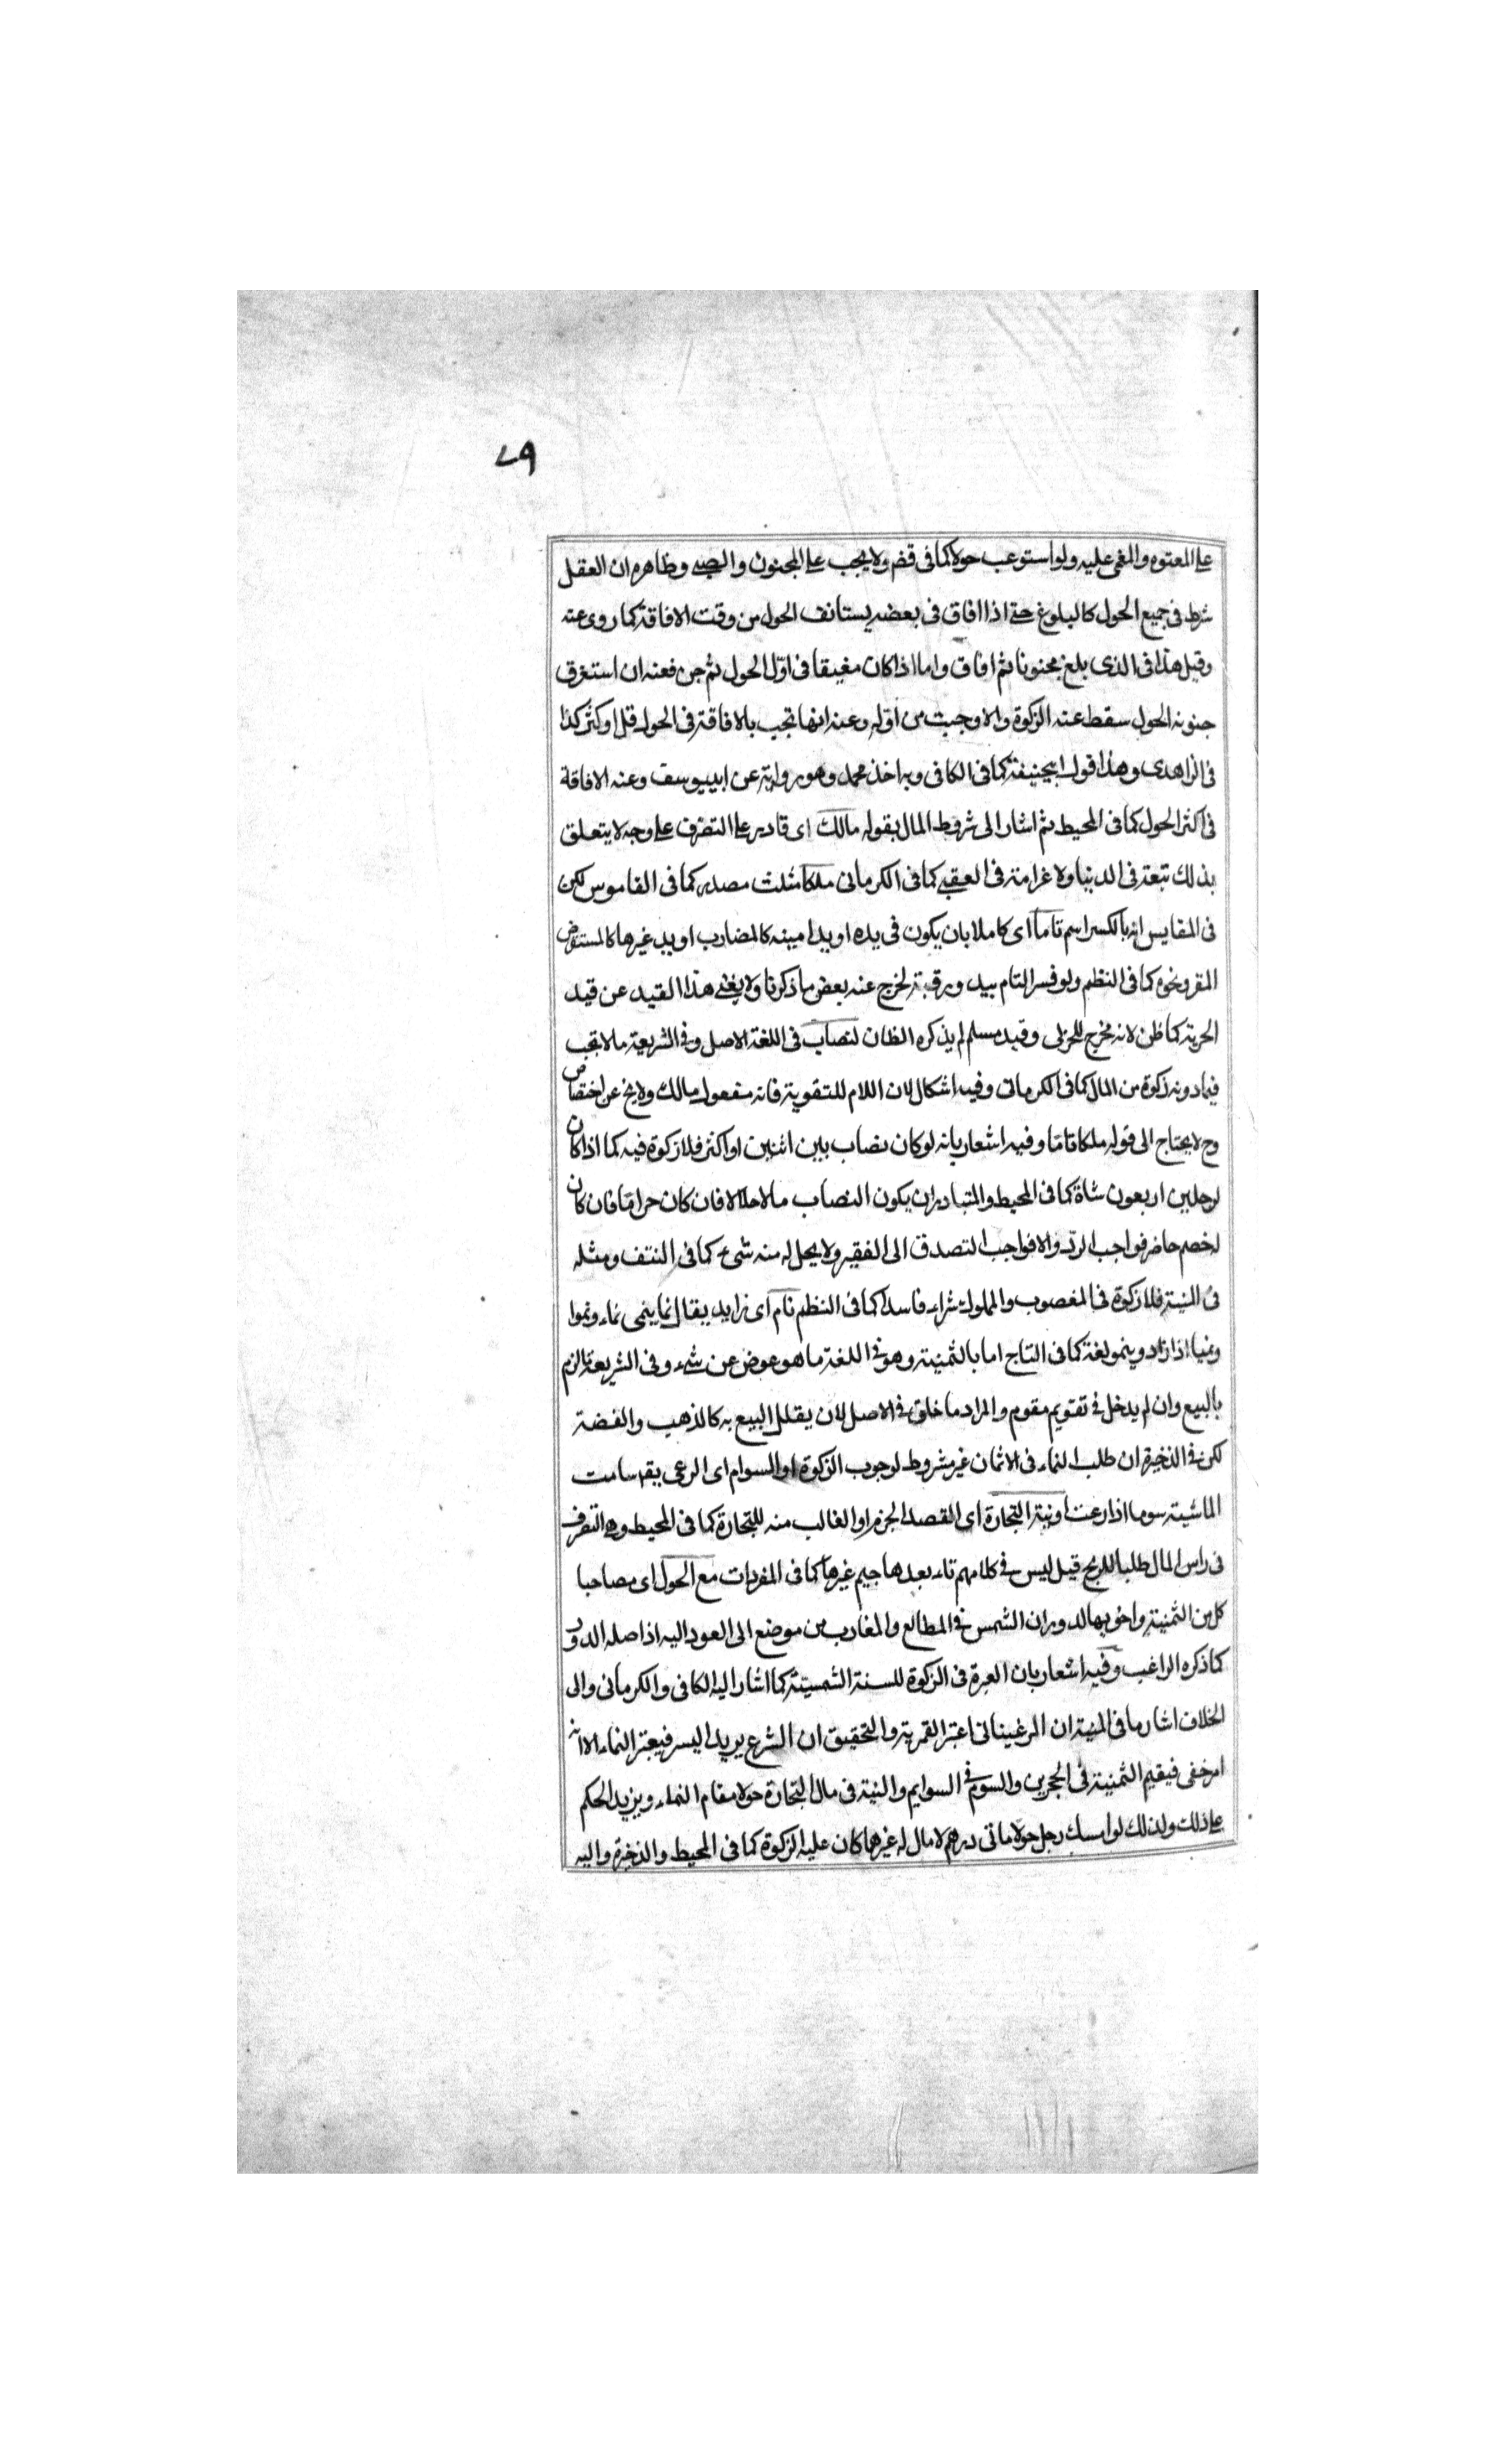 ٧٩
على المعتوه والمغمى عليه ولو استوعب حولا كما فى قض ولا يجب على المجنون والصبى وظاهره ان العقل
شرط فى جميع الحول كالبلوغ حتى اذا افاق فى بعضه يستانف الحول من وقت الافاقة كما روى عنه
وقيل هذا فى الذى بلغ مجنونا ثم افاق واما اذا كان مفيقا فى اول الحول ثم جن فعنه ان استغرق
جنونه الحول سقط عنه الزكوة والا وجبت من اوله وعنه انها تجب بالافاقة فى الحول قل او كثر كذا
فى الزاهدى وهذا قول ابيحنيفة كما فى الكافى وبه اخذ محمد وهو رواية عن ابييوسف وعنه الافاقة
فى اكثر الحول كما فى المحيط ثم اشار الى شروط المال بقوله مالك اى قادر على التصرف على وجه لا يتعلق
بذلك تبعة فى الدنيا ولا غرامة فى العقبى كما فى الكرمانى ملكا مثلث مصدر كما فى القاموس لكن
فى المقايس انه بالكسر اسم تاما اى كاملا بان يكون فى يده او يد امينه كالمضارب او يد غيرها كالمستقرض
المقر ونحوه كما فى النظم ولو فسر التام بيد ورقبة لخرج عنه بعض ما ذكرنا ولا يغنى هذا القيد عن قيد
الحرية كما ظن لانه مخرج للحربى وقيد مسلم لم يذكره الظان لنصاب فى اللغة الاصل وفى الشريعة ما لا تجب
فيما دونه زكوة من المال كما فى الكرمانى وفيه اشكال لان اللام للتقوية فانه مفعول مالك ولا يخ عن اختصاص
وح لا يحتاج الى قوله ملكا تاما وفيه اشعار بانه لو كان نصاب بين اثنين او اكثر فلا زكوة فيه كما اذا كان
لرجلين اربعون شاة كما فى المحيط والمتبادر ان يكون النصاب مالا حلالا فان كان حراما فان كان
له خصم حاضر فواجب الرد والا فواجب التصدق الى الفقير ولا يحل له منه شىء كما فى النتف ومثله
فى المنية فلا زكوة فى المغصوب والمملوك شراء فاسدا كما فى النظم نام اى زايد يقال نما ينمى نماء ونموا
ونميا اذا زاد وينمو لغة كما فى التاج اما بالثمنية وهو فى اللغة ما هو عوض عن شىء وفى الشريعة ما لزم
بالبيع وان لم يدخل فى تقويم مقوم والمراد ما خلق فى الاصل لان يقلل البيع به كالذهب والفضة
لكن فى الذخيرة ان طلب النماء فى الاثمان غير مشروط لوجوب الزكوة او السوام اى الرعى يقم سامت
الماشية سوما اذا رعت او نية التجارة اى القصد الجزم او الغالب منه للتجارة كما فى المحيط وهى التصرف
فى راس المال طلبا للربح قيل ليس فى كلامهم تاء بعدها جيم غيرها كما فى المفردات مع الحول اى مصاحبا
كل من الثمنية واخويها لدوران الشمس فى المطالع والمغارب من موضع الى العود اليه اذ اصله الدور
كما ذكره الراغب وفيه اشعار بان العبرة فى الزكوة للسنة الشمسية كما اشار اليه الكافى والكرمانى والى
الخلاف اشار ما فى المنية ان المرغينانى اعتبر القمرية والتحقيق ان الشرع يريد اليسر فيعتبر النماء الا انه
امر خفى فيقيم الثمنية فى الحجرين والسوم فى السوايم والنية فى مال التجارة حولا مقام النماء ويزيد الحكم
على ذلك ولذلك لو امسك رجل حولا ماتى درهم لا مال له غيرها كان عليه الزكوة كما فى المحيط والذخيرة واليه